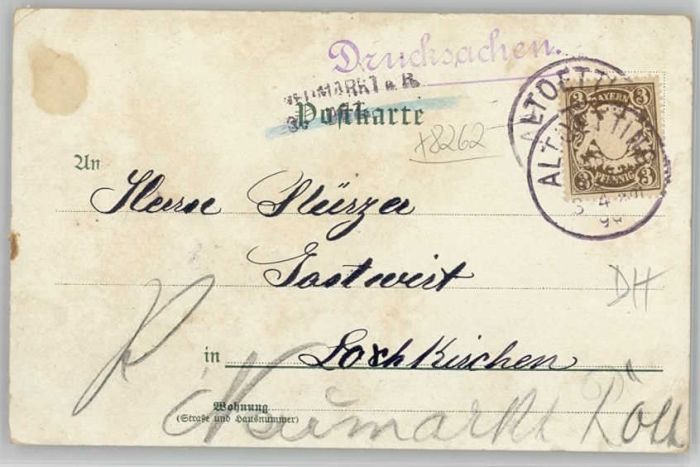 Drucksachen.
NEUMARKT a. R.
Postkarte
+8262
ALTOETTING
BAYERN
3 3
3 PFENNIG 3
An
Herrn Stürzer
Gastwirt
DH
in Lochkirchen
Wohnung
(Straße und Hausnummer)
Neumarkt